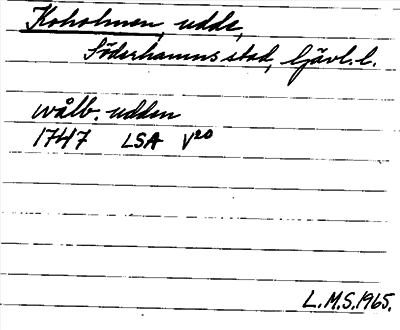 Koholmen, udde,
Söderhamns stad, Gävl. l.
wålb. udden
1747 LSA V20
L.M.S. 1965.